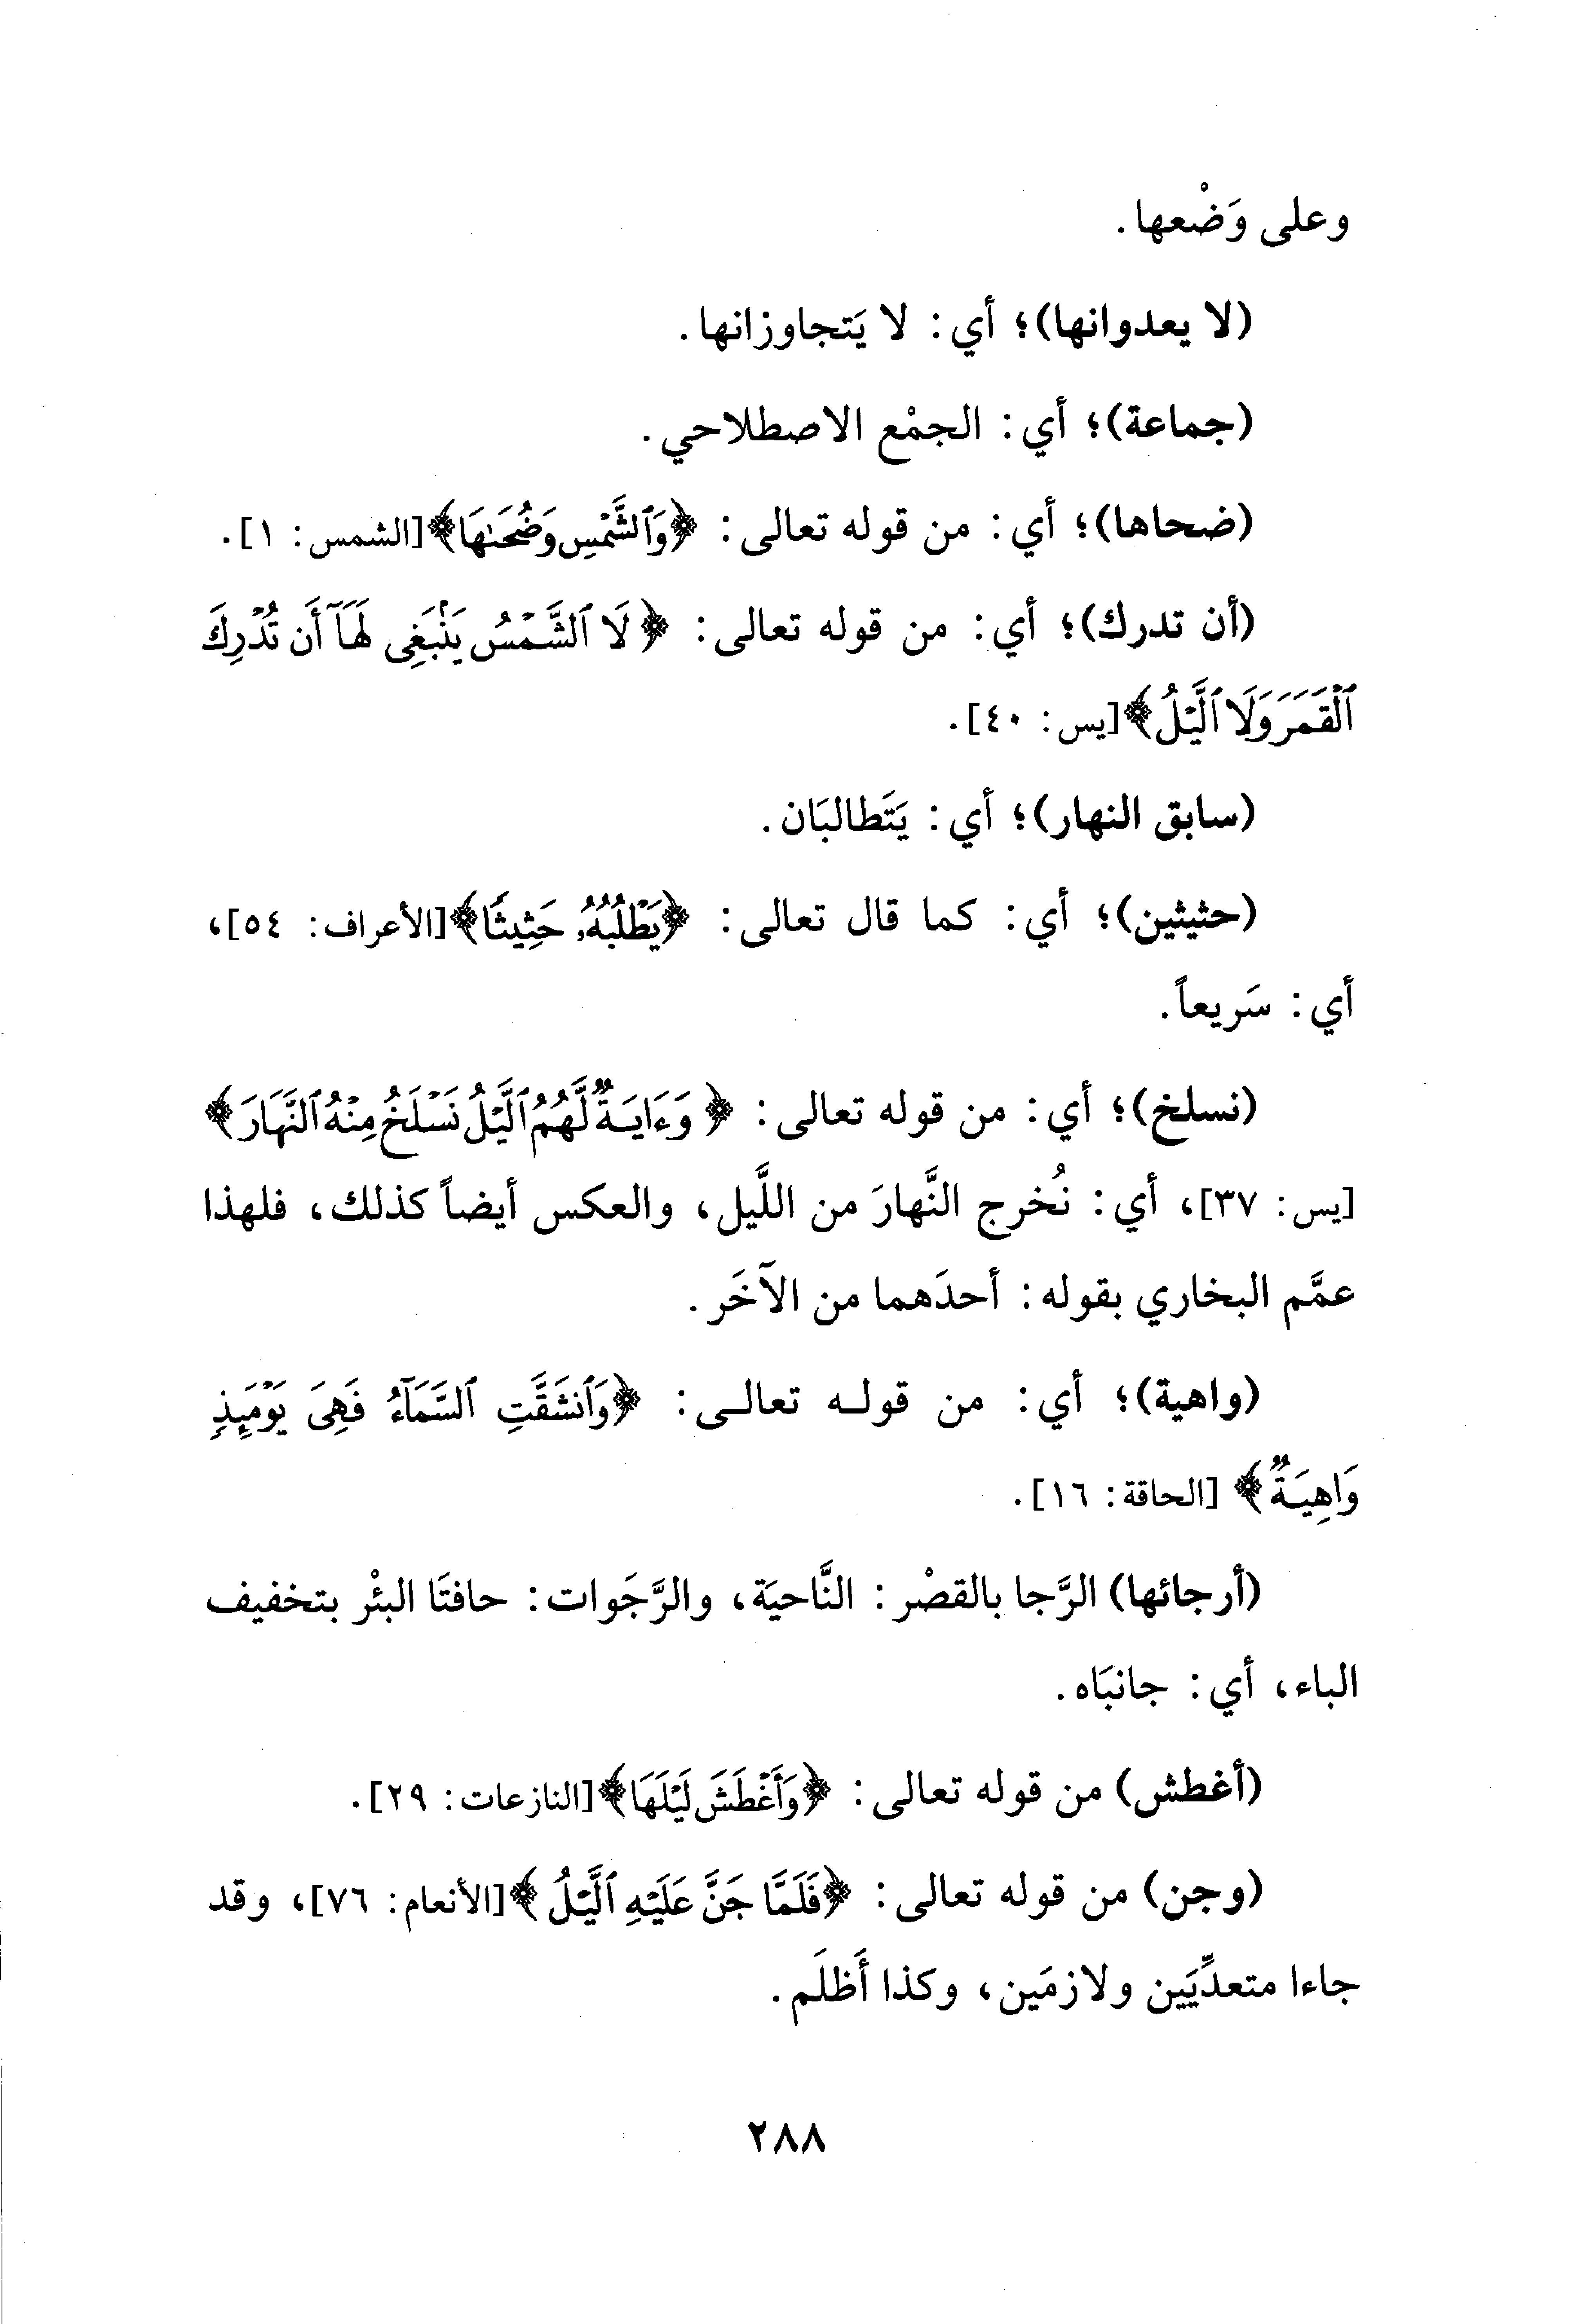 وعلى وَضْعها.
(لا يعدوانها)؛ أي: لا يَتجاوزانها.
(جماعة)؛ أي: الجمْع الاصطلاحي.
(ضحاها)؛ أي: من قوله تعالى: ﴿وَٱلشَّمْسِ وَضُحَىٰهَا﴾ [الشمس: ١].
(أن تدرك)؛ أي: من قوله تعالى: ﴿لَا ٱلشَّمْسُ يَنۢبَغِى لَهَآ أَن تُدْرِكَ
ٱلْقَمَرَ وَلَا ٱلَّيْلُ﴾ [يس: ٤٠].
(سابق النهار)؛ أي: يَتَطالبَان.
(حثيثين)؛ أي: كما قال تعالى: ﴿يَطْلُبُهُۥ حَثِيثًا﴾ [الأعراف: ٥٤]،
أي: سَريعاً.
(نسلخ)؛ أي: من قوله تعالى: ﴿وَءَايَةٌ لَّهُمُ ٱلَّيْلُ نَسْلَخُ مِنْهُ ٱلنَّهَارَ﴾
[يس: ٣٧]، أي: نُخرج النَّهارَ من اللَّيل، والعكس أيضاً كذلك، فلهذا
عمَّم البخاري بقوله: أحدَهما من الآخَر.
(واهية)؛ أي: من قولـه تعالـى: ﴿وَٱنشَقَّتِ ٱلسَّمَآءُ فَهِىَ يَوْمَئِذٍ
وَاهِيَةٌ﴾ [الحاقة: ١٦].
(أرجائها) الرَّجا بالقصْر: النَّاحيَة، والرَّجَوات: حافتَا البئْر بتخفيف
الباء، أي: جانبَاه.
(أغطش) من قوله تعالى: ﴿وَأَغْطَشَ لَيْلَهَا﴾ [النازعات: ٢٩].
(وجن) من قوله تعالى: ﴿فَلَمَّا جَنَّ عَلَيْهِ ٱلَّيْلُ﴾ [الأنعام: ٧٦]، وقد
جاءا متعدِّيَين ولازمَين، وكذا أَظلَم.
٢٨٨